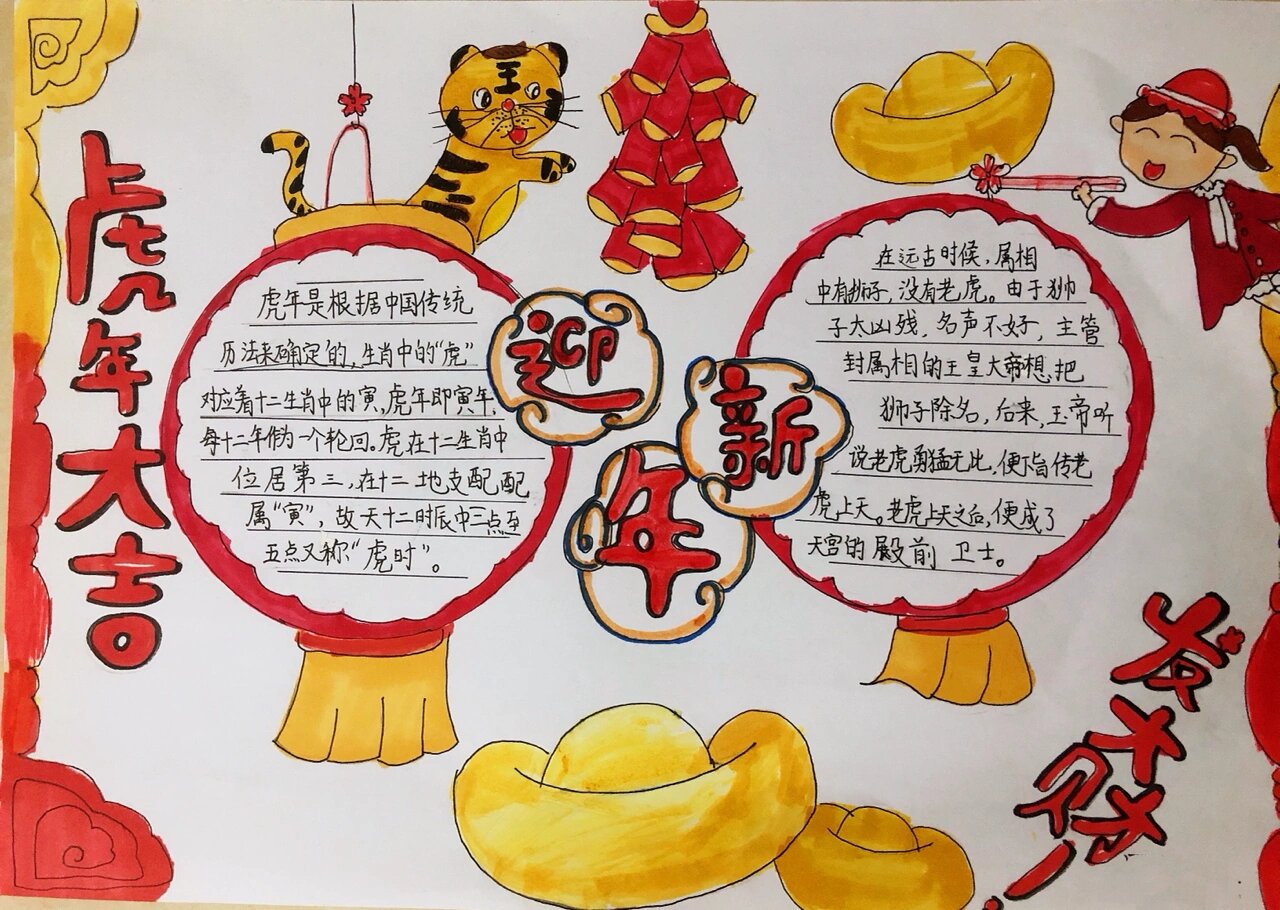 虎年大吉
王
虎年是根据中国传统
历法来确定的,生肖中的"虎"
对应着十二生肖中的寅,虎年即寅年,
每十二年作为一个轮回。虎在十二生肖中
位居第三,在十二地支配配
属"寅",故天十二时辰中三点至
五点又称"虎时"。
迎
新
年
在远古时候,属相
中有狮子,没有老虎。由于狮
子太凶残,名声不好,主管
封属相的王皇大帝想把
狮子除名,后来,玉帝听
说老虎勇猛无比,便下旨传老
虎上天。老虎上天之后,便成了
天宫的殿前卫士。
发大财!